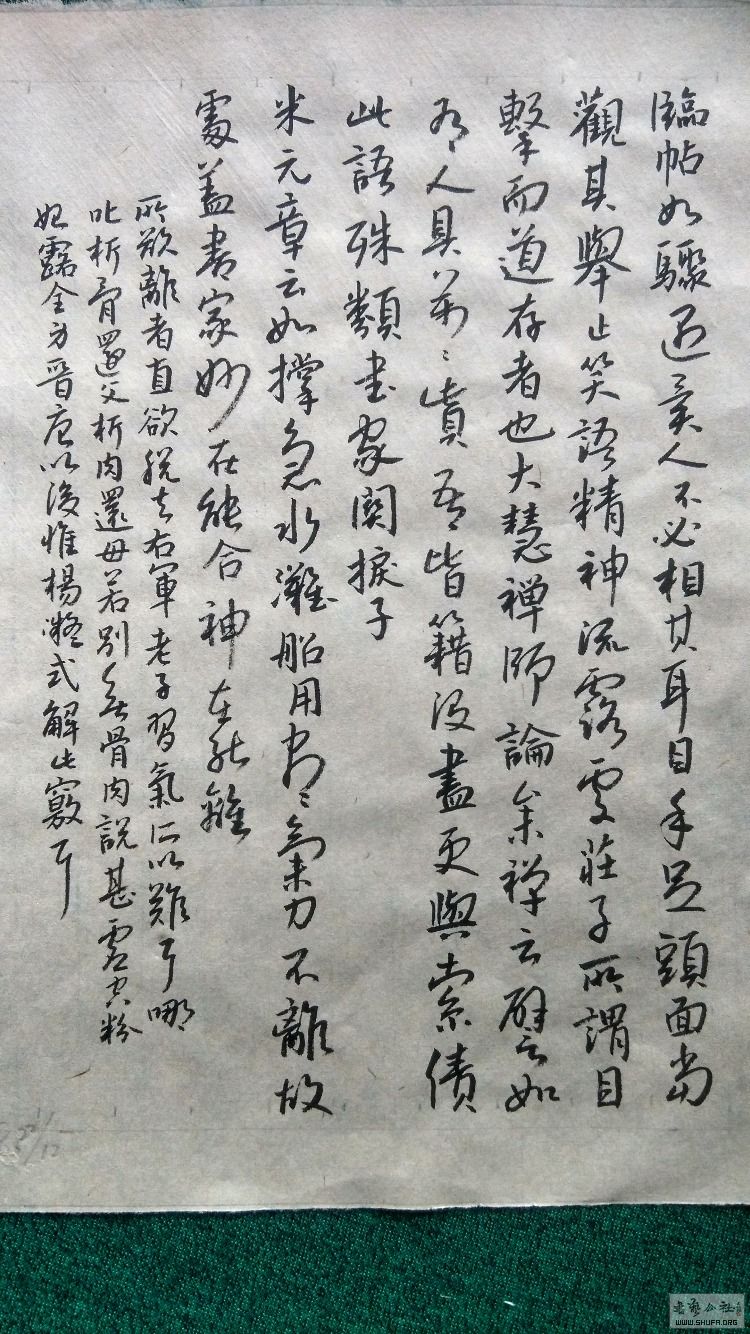 臨帖如驟遇異人不必相其耳目手足頭面當
觀其舉止笑語精神流露處莊子所謂目
擊而道存者也大慧禅師論參禅云譬如
有人具萬〻貲吾皆籍没盡更與索债
此語殊類書家関捩子
米元章云如撑急水灘船用盡氣力不離故
處盖書家妙在能合神在能離
所欲離者直欲脱去右軍老子習氣所以難耳哪
叱析骨還父析肉還母若别無骨肉説甚虚空粉
始露全身晉唐以後惟楊凝式解此竅耳
書藝公社
WWW.SHUFA.ORG